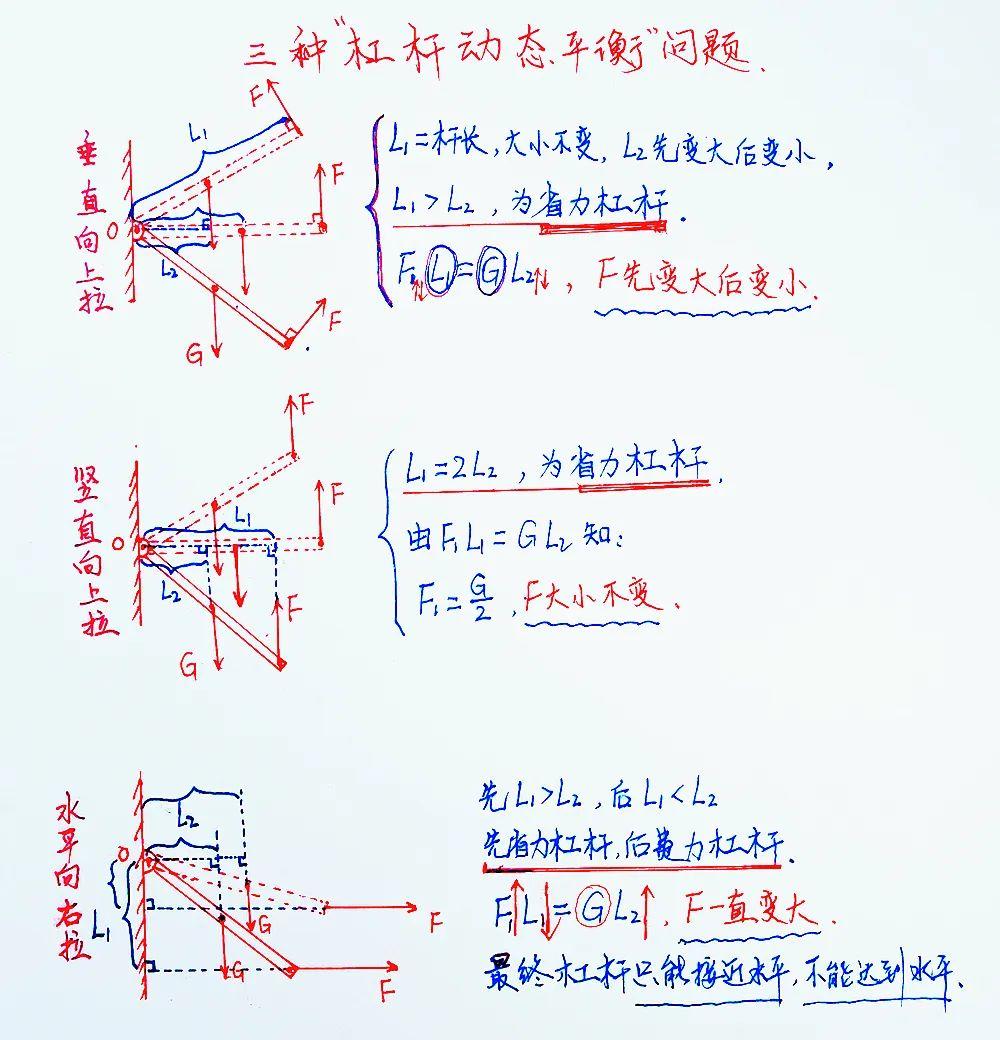 三种"杠杆动态平衡"问题.
垂直向上拉
F
L₁
F
O
L₂
F
G
L₁=杆长,大小不变,L₂先变大后变小,
L₁>L₂,为省力杠杆.
F₁↑↓L₁=G L₂↑↓,F先变大后变小.
竖直向上拉
F
F
L₁
O
L₂
F
G
L₁=2L₂,为省力杠杆.
由F₁L₁=GL₂知:
F₁=G/2,F大小不变.
水平向右拉
L₂
O
L₁
G
F
G
F
先L₁>L₂,后L₁<L₂
先省力杠杆,后费力杠杆.
F₁↑L₁↓=G L₂↑,F一直变大.
最终杠杆只能接近水平,不能达到水平.